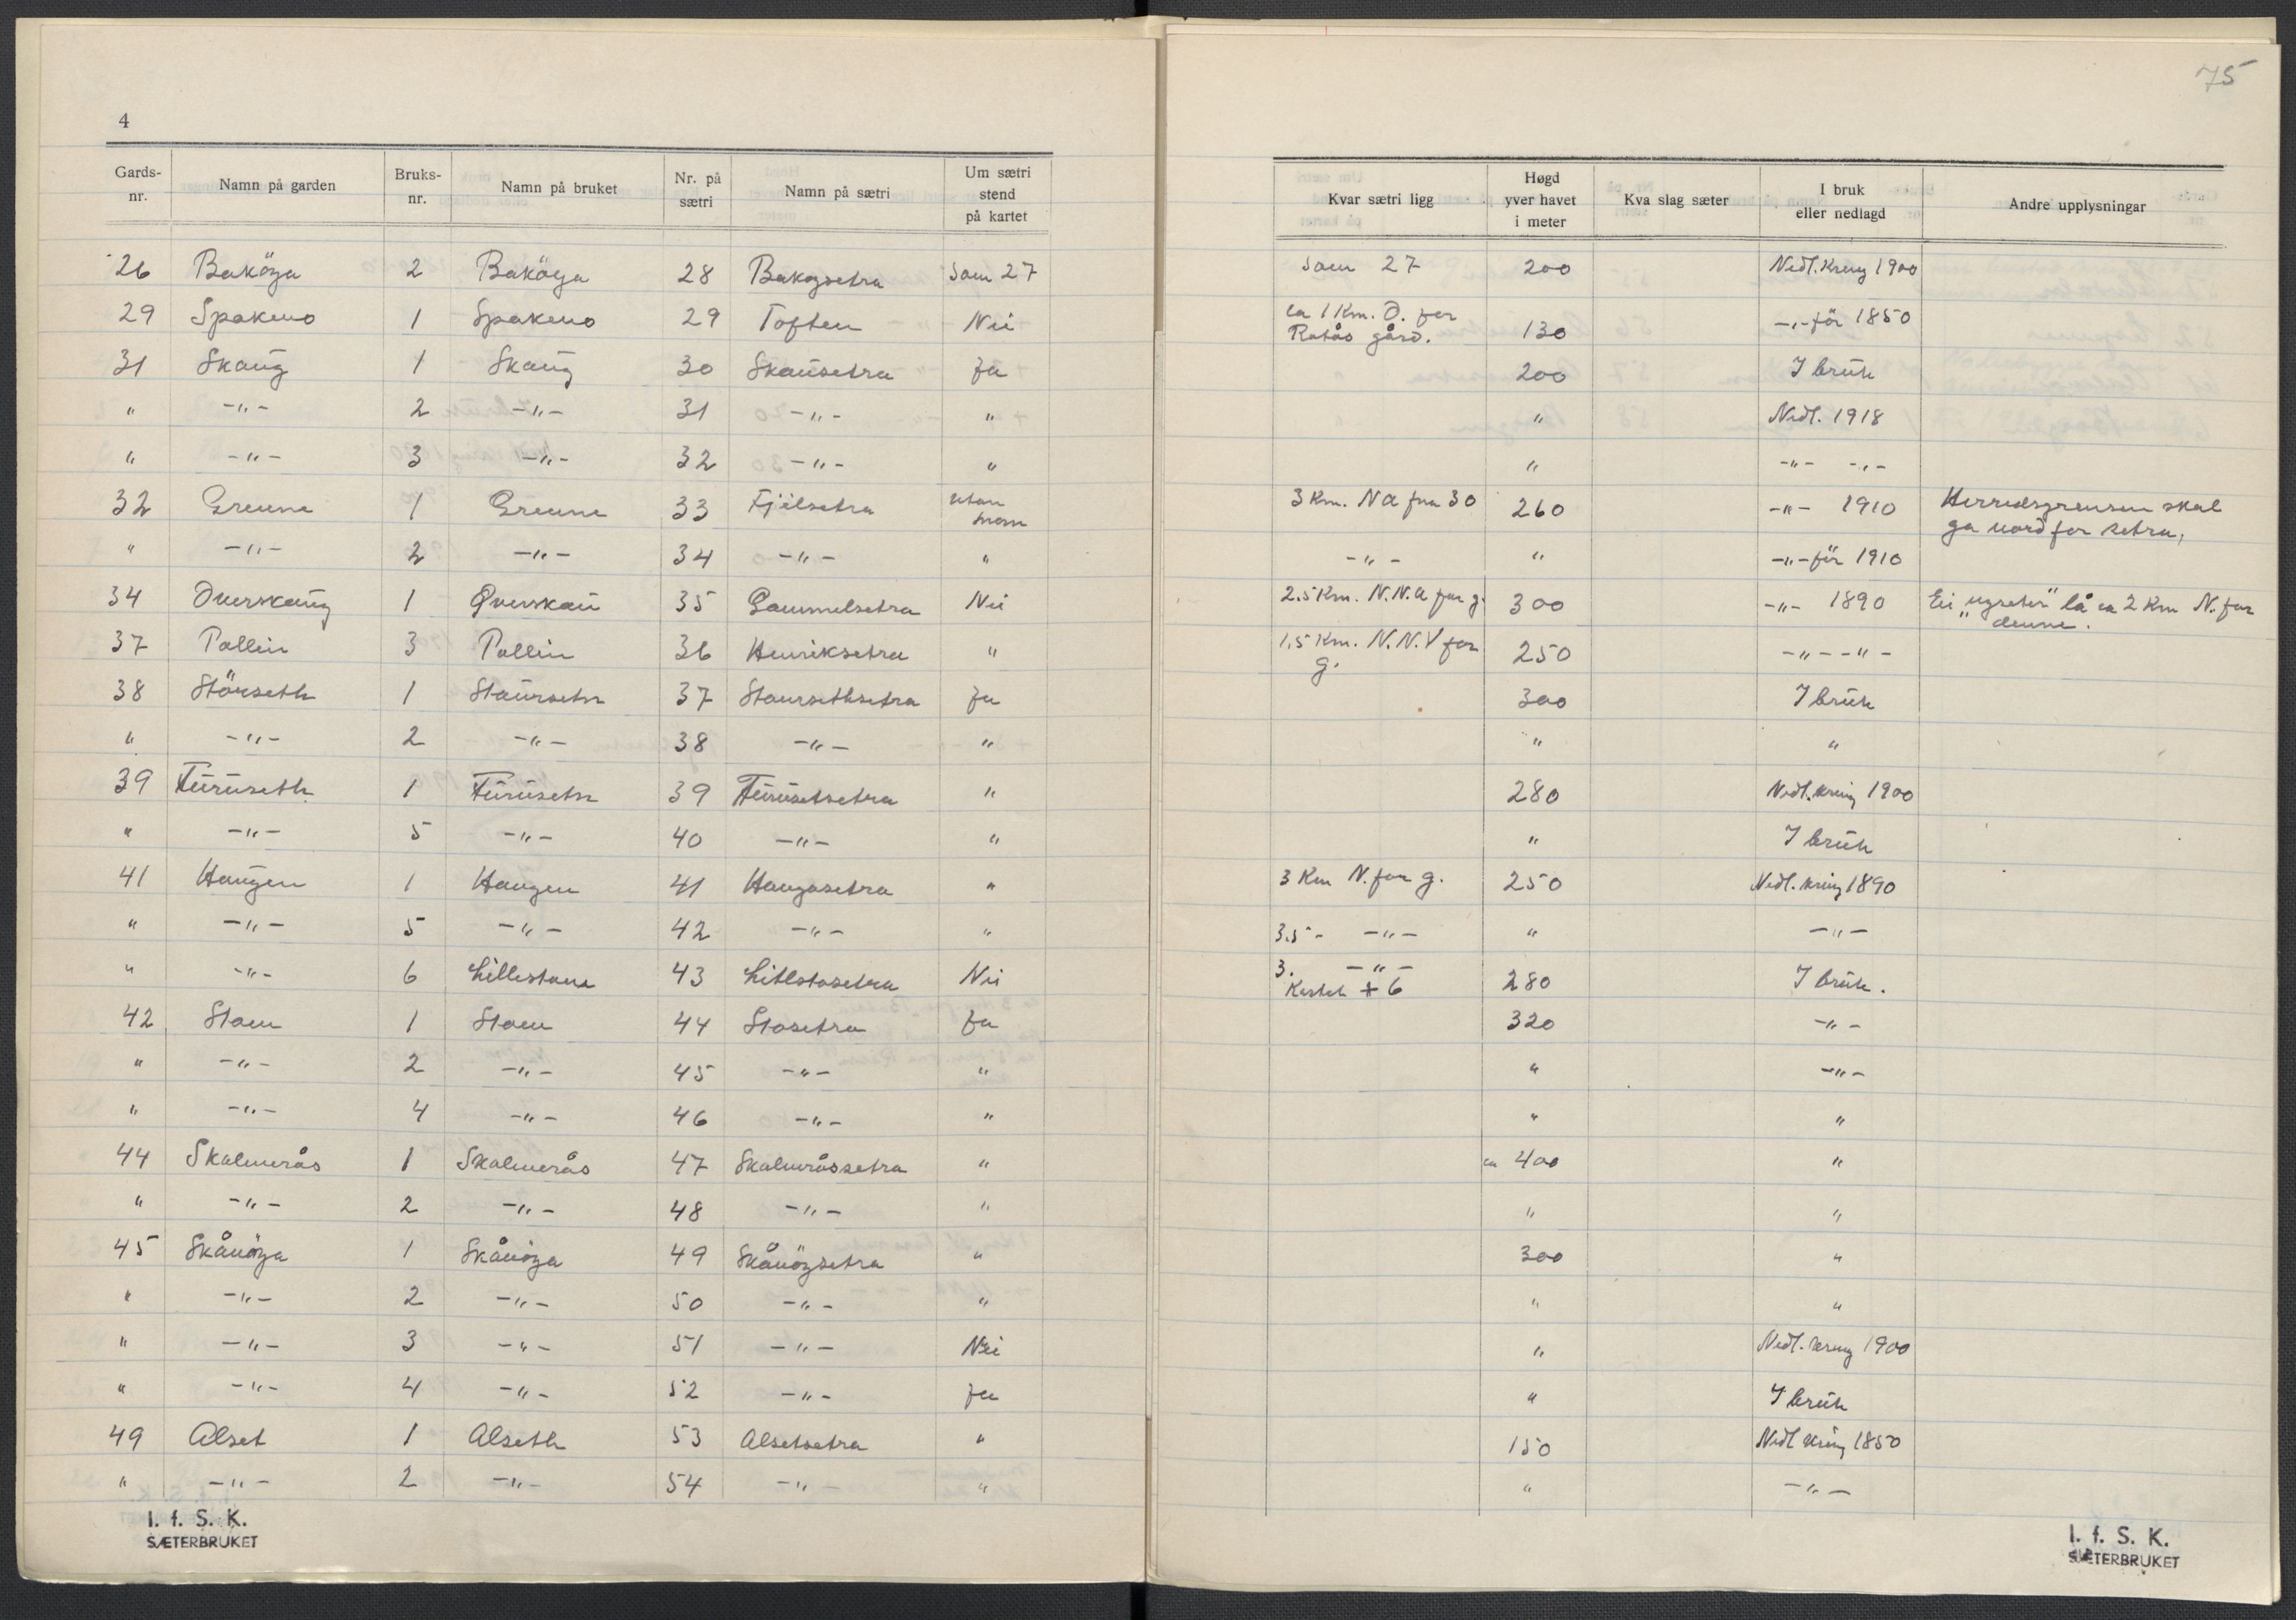 75
4
Gards-nr. Namn på garden Bruks-nr. Namn på bruket Nr. på sætri Namn på sætri Um sætri stend på kartet Kvar sætri ligg Høgd yver havet i meter Kva slag sæter I bruk eller nedlagd Andre upplysningar
26 Baköya 2 Baköya 28 Bakøysetra Som 27 Som 27 200 Nedl. kring 1900
29 Spakmo 1 Spakmo 29 Toften Nei ca 1 Km. Ø. for Ratås gård. 130 -"- för 1850
31 Skaug 1 Skaug 30 Skausetra Ja 200 I bruk
" -"- 2 -"- 31 -"- " " Nedl. 1918
" -"- 3 -"- 32 -"- " " -"- -"-
32 Grenne 1 Grenne 33 Fjelsetra utan 3 Km. NA fra 30 260 -"- 1910 Herredsgrensen skal ga nord for setra,
" -"- 2 -"- 34 -"- " -"- " -"- för 1910
34 Overskaug 1 Overskau 35 Gammelsetra Nei 2.5 Km. N.N.A for g. 300 -"- 1890 Ei "ugseter" lå ca 2 Km N. for denne.
37 Pallin 3 Pallin 36 Henriksetra " 1,5 Km. N.N.V for g. 250 -"- -"-
38 Störseth 1 Staurseth 37 Staursethsetra Ja 300 I bruk
" -"- 2 -"- 38 -"- " " "
39 Furuseth 1 Furuseth 39 Furusetsetra " 280 Nedl. kring 1900
" -"- 5 -"- 40 -"- " " I bruk
41 Haugen 1 Haugen 41 Haugasetra " 3 Km N. for g. 250 Nedl. kring 1890
" -"- 5 -"- 42 -"- " 3.5 - -"- " -"-
" -"- 6 Lillestoen 43 Litlstosetra Nei 3. -"- Kartet + 6 280 I bruk.
42 Stoen 1 Stoen 44 Stosetra Ja 320 -"-
" -"- 2 -"- 45 -"- " " -"-
" -"- 4 -"- 46 -"- " " "
44 Skalmerås 1 Skalmerås 47 Skalmeråssetra " ca 400 "
" -"- 2 -"- 48 -"- " " "
45 Skånöya 1 Skånöya 49 Skånöysetra " 300 "
" -"- 2 -"- 50 -"- " " "
" -"- 3 -"- 51 -"- Nei " Nedl. kring 1900
" -"- 4 -"- 52 -"- Ja " I bruk
49 Alset 1 Alseth 53 Alsetsetra " 150 Nedl kring 1850
" -"- 2 -"- 54 -"- " " -"-
I. f. S. K.
SÆTERBRUKET
I. f. S. K.
SÆTERBRUKET